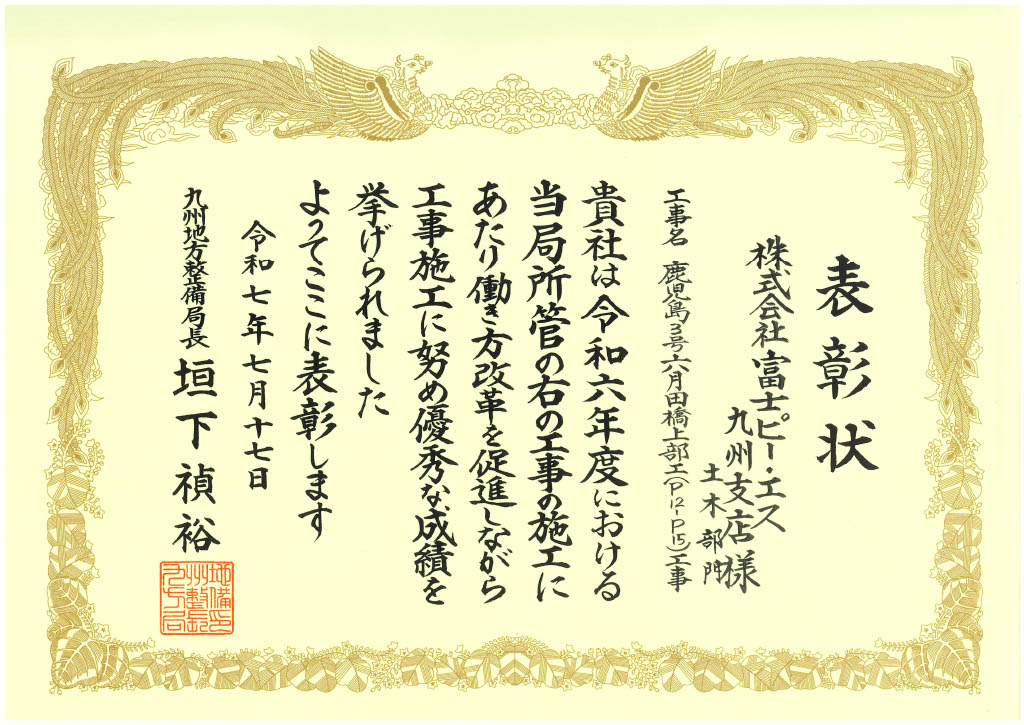 表彰状
株式会社富士ピー・エス
九州支店様
土木部門
工事名 鹿児島3号六月田橋上部工(P12-P15)工事
貴社は令和六年度における
当局所管の右の工事の施工に
あたり働き方改革を促進しながら
工事施工に努め優秀な成績を
挙げられました
よってここに表彰します
令和七年七月十七日
九州地方整備局長 垣下禎裕